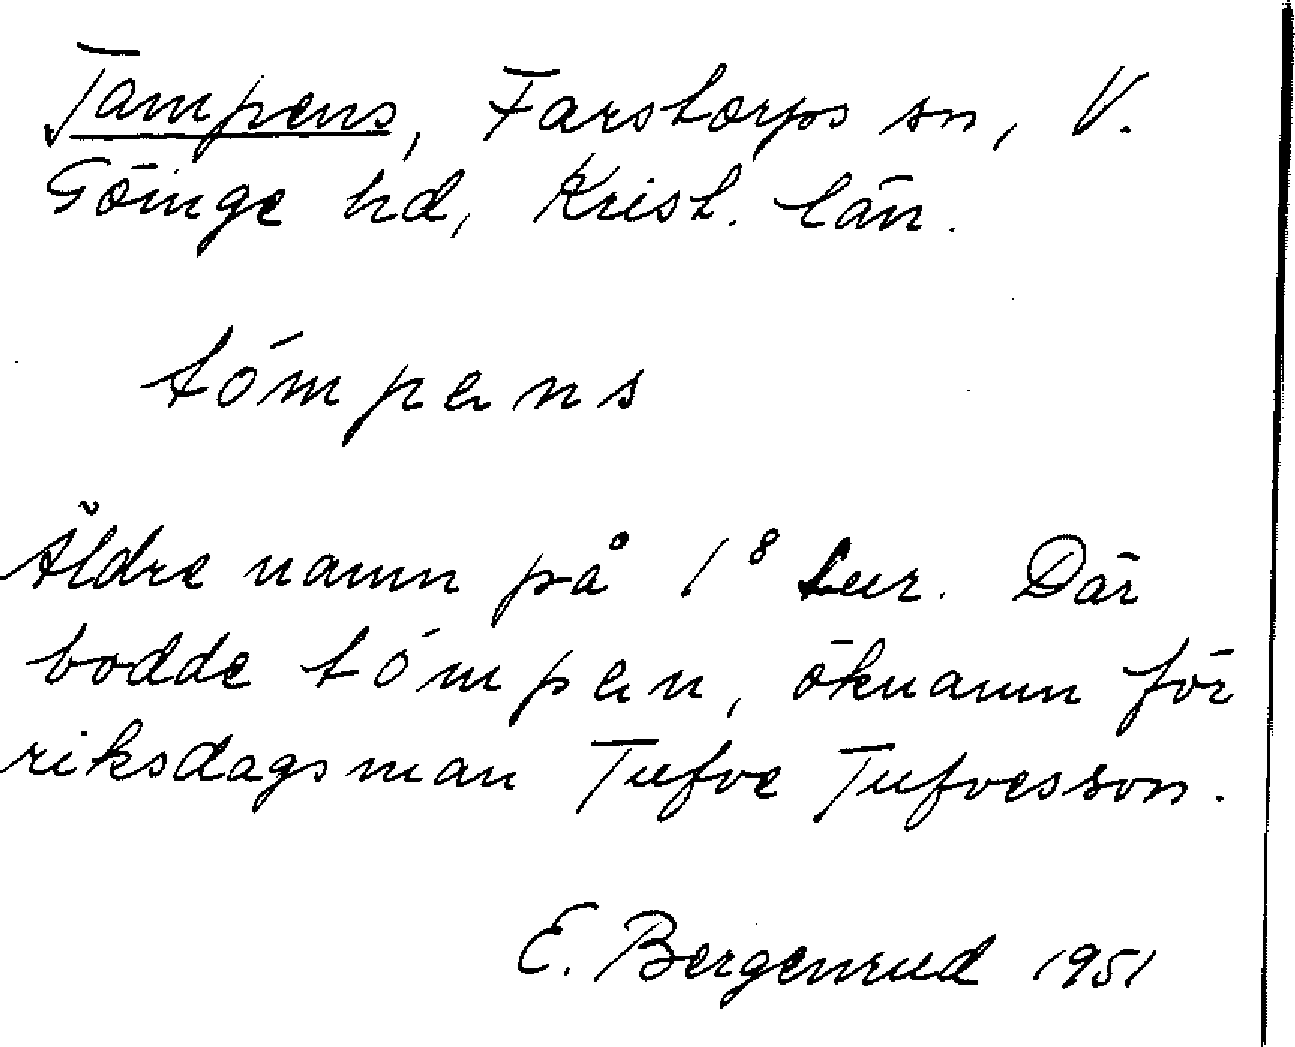 Tampens, Farstorps sn, V.
Göinge hd, Krist. län.
tómpens
Äldre namn på 1⁸ Lur. Där
bodde tómpen, öknamn för
riksdagsman Tufve Tufvesson.
E. Bergenrud 1951